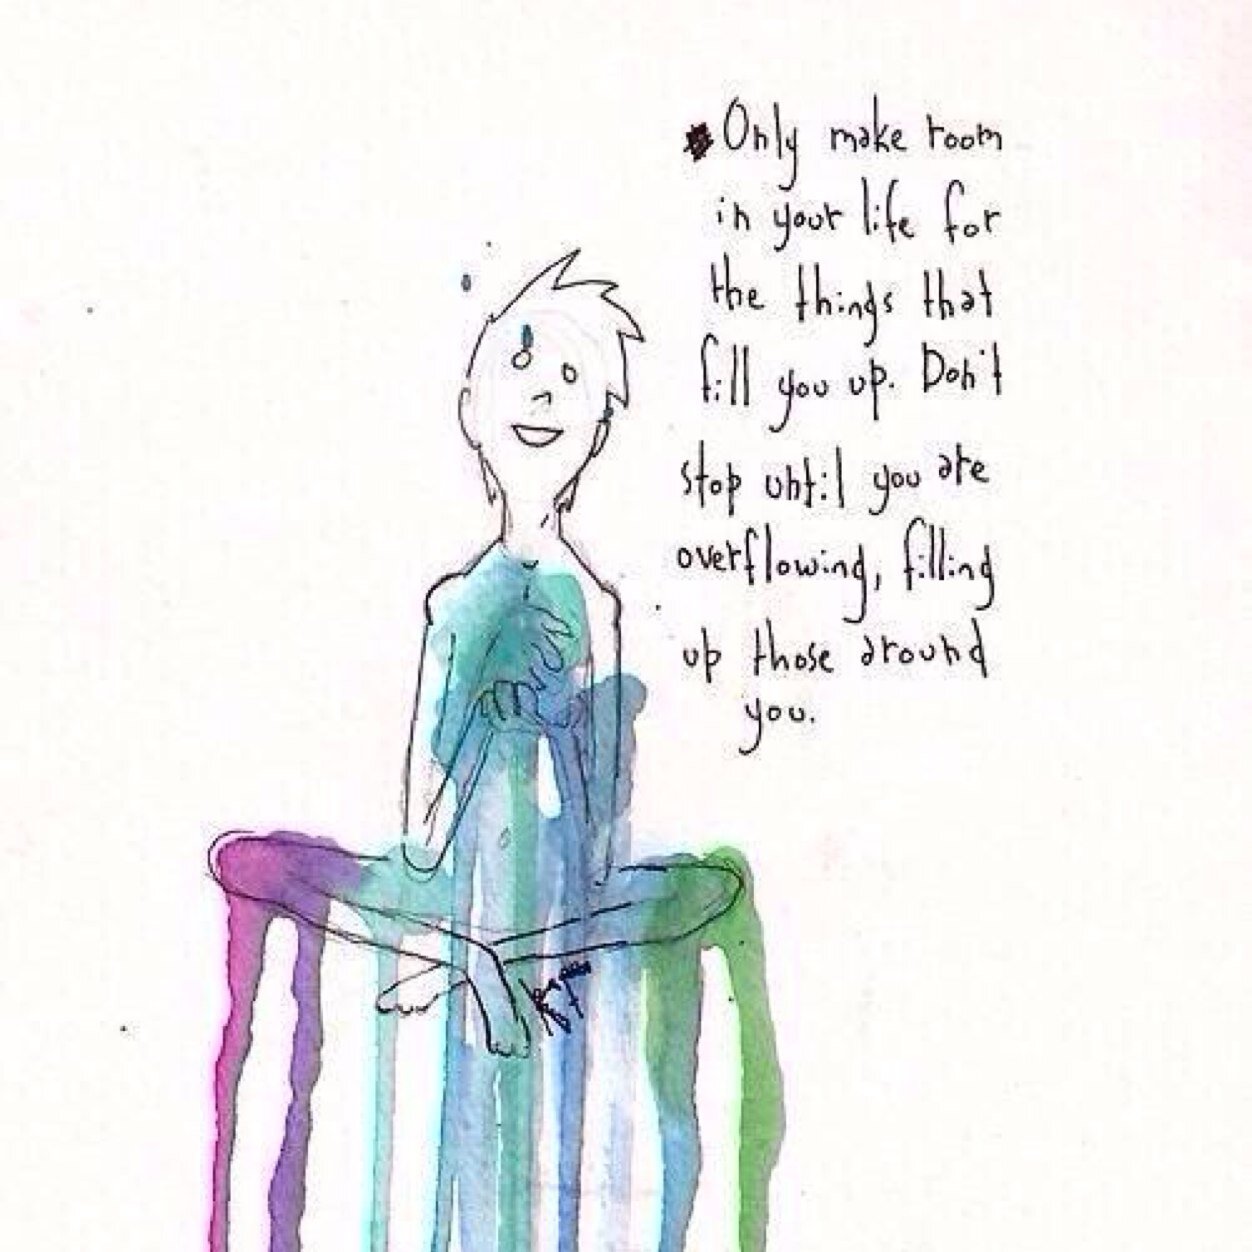 Only make room
in your life for
the things that
fill you up. Don't
stop until you are
overflowing, filling
up those around
you.